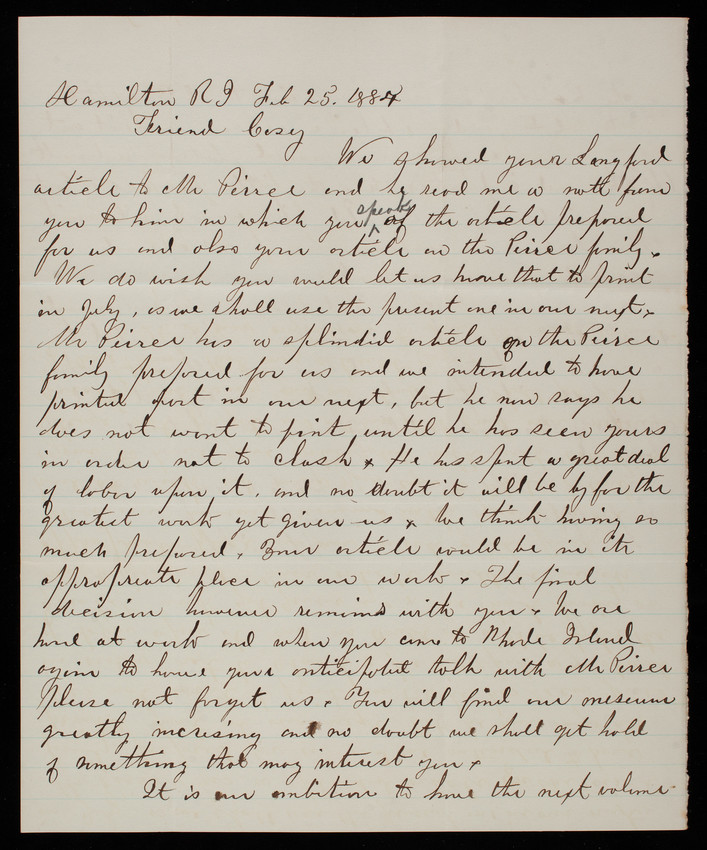 Hamilton R I Feb 25. 1884
Friend Casey
We showed your Langford
article to Mr Peirce and he read me a note from
you to him in which you speak of the article prepared
for us and also your article on the Peirce family.
We do wish you would let us have that to print
in July, as we shall use the present one in our next.
Mr Peirce has a splindid article on the Peirce
family prepared for us and we intended to have
printed part in our next, but he now says he
does not want to print until he has seen yours
in order not to clash. He has spent a great deal
of labor upon it, and no doubt it will be by far the
greatest work yet given us. We think having so
much prepared. Your article would be in its
appropriate place in our work. The final
decision however remains with you. We are
hard at work and when you come to Rhode Island
again to have your anticipated talk with Mr Peirce
please not forget us. You will find our meseum
greatly incresing and no doubt we shall get hold
of something that may interest you.
It is our ambition to have the next volume